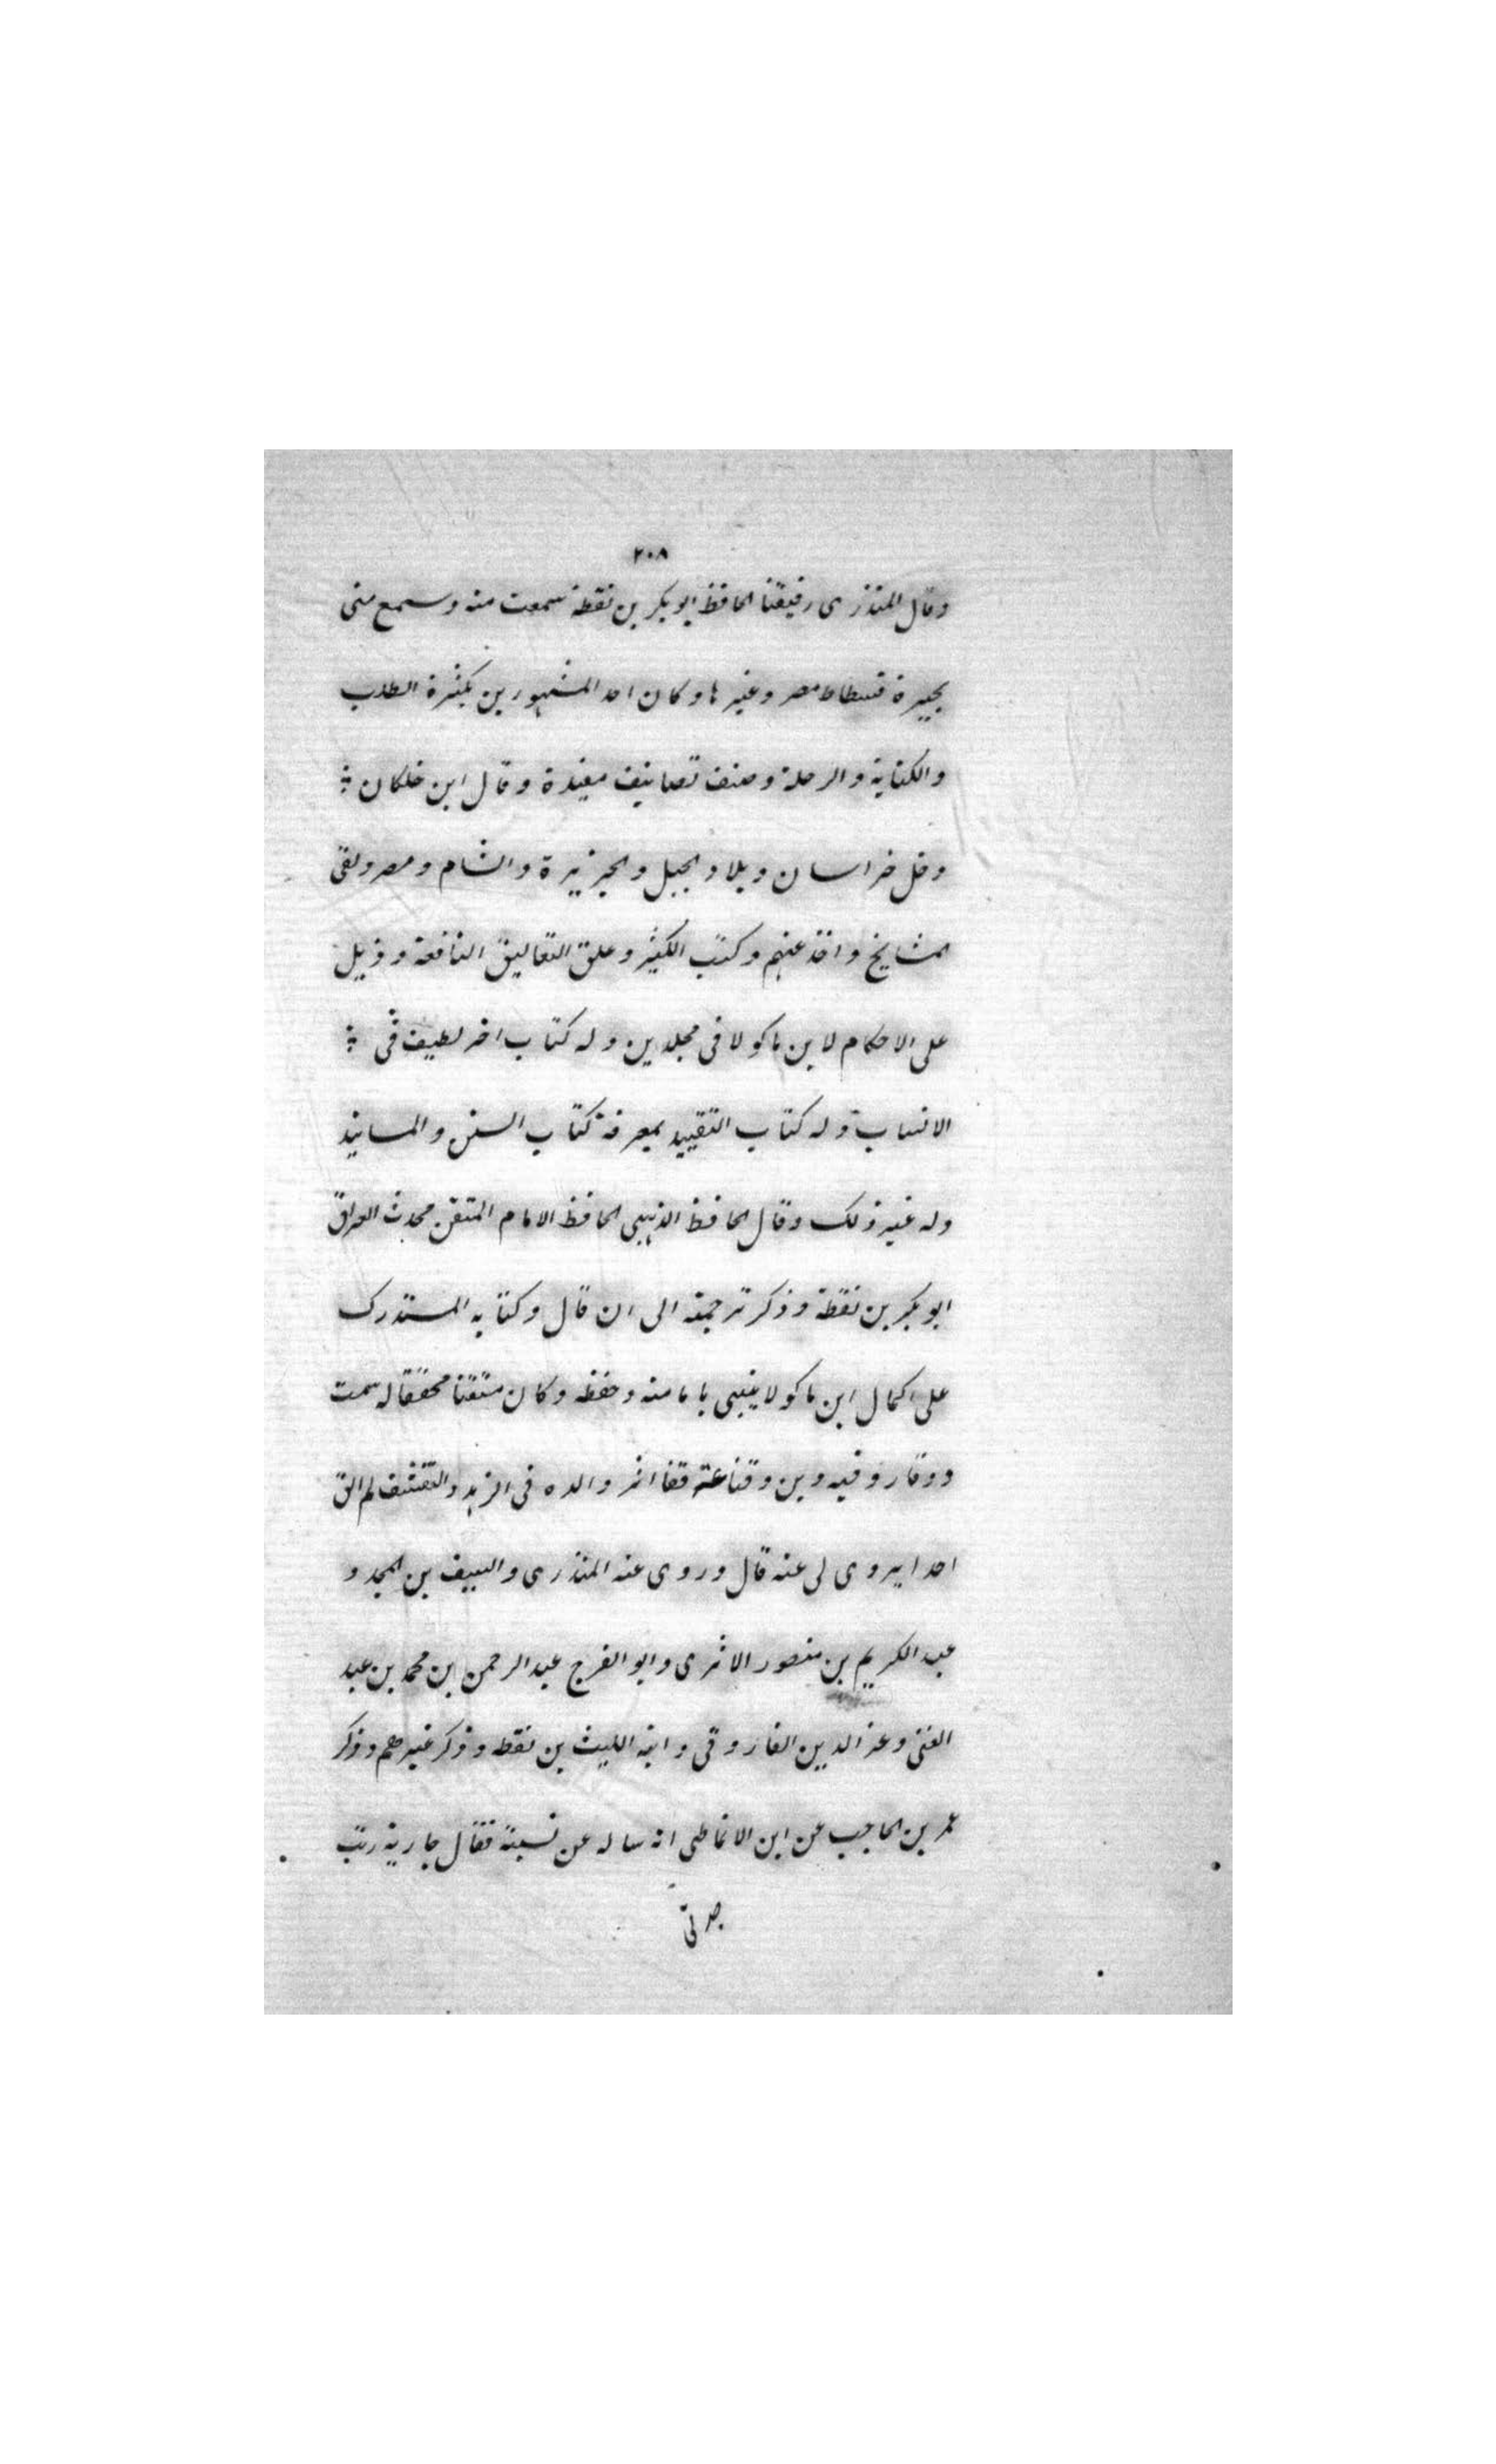 ٢٠٨
وقال المنذرى رفيقنا الحافظ ابو بكر بن نقطة سمعت منه وسمع منى
بجيرة فسطاط مصر وغيرها وكان احد المشهورين بكثرة الطلب
والكتابة والرحلة وصنف تصانيف مفيدة وقال ابن خلكان
دخل خراسان وبلاد الجبل والجزيرة والشام ومصر ولقى
المشايخ واخذ عنهم وكتب الكثير وعلق التعاليق النافعة وذيل
على الاحكام لابن ماكولا فى مجلدين وله كتاب اخر لطيف فى
الانساب وله كتاب التقييد بمعرفة كتاب السنن والمسانيد
وله غير ذلك وقال الحافظ الذهبى الحافظ الامام المتقن محدث العراق
ابو بكر بن نقطة وذكر ترجمته الى ان قال وكتابه المستدرك
على اكمال ابن ماكولا ينبى بامامته وحفظه وكان متقنا محققا له سمت
ووقار وفيه دين وقناعة قفا اثر والده فى الزهد والتقشف لم الق
احدا يروى لى عنه قال وروى عنه المنذرى والسيف بن المجد و
عبد الكريم بن منصور الاثرى وابو الفرج عبد الرحمن بن محمد بن عبد
الغنى وعز الدين الفاروقى وابنه الليث بن نقطه وذكر غيرهم وذكر
عمر بن الحاجب عن ابن الانماطى انه ساله عن نسبته فقال جارية ربت
جدتى